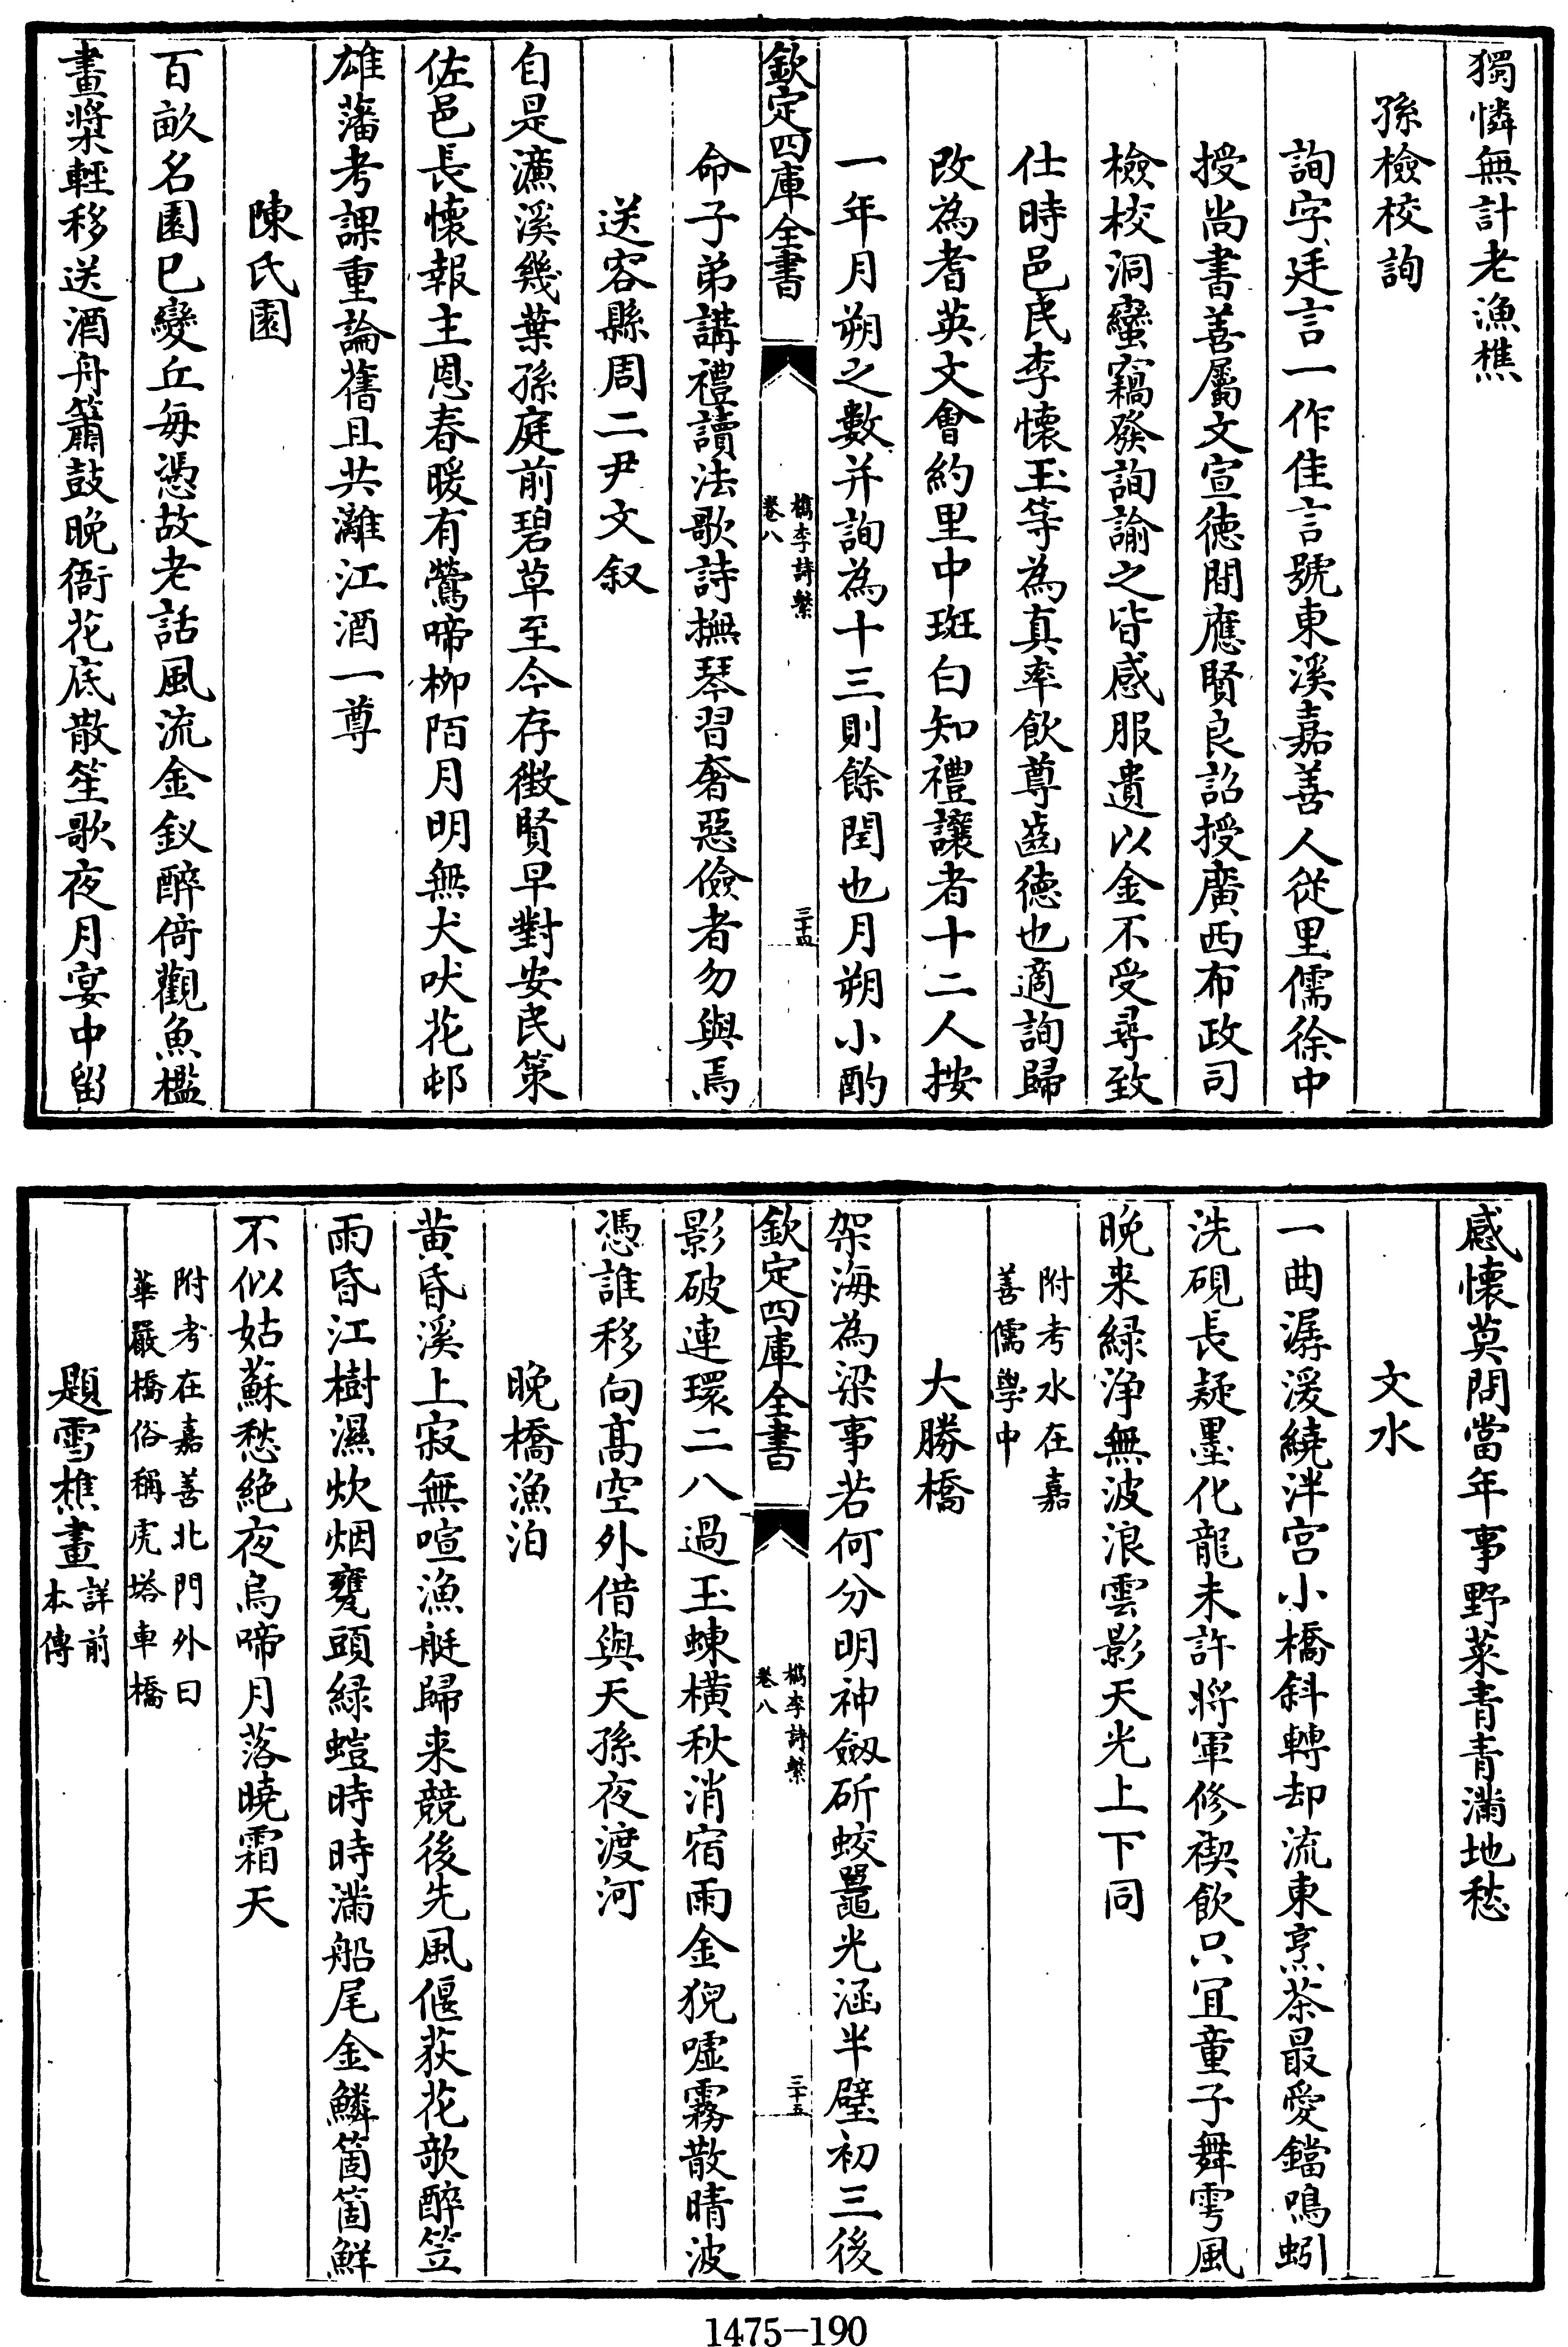 獨憐無計老漁樵
孫檢校詢
詢字廷言一作佳言號東溪嘉善人從里儒徐中
授尚書善屬文宣徳間應賢良詔授廣西布政司
檢校洞蠻竊發詢諭之皆感服遺以金不受尋致
仕時邑民李懷玉等為真率飲尊齒徳也適詢歸
改為耆英文會約里中斑白知禮讓者十二人按
一年月朔之數并詢為十三則餘閏也月朔小酌
欽定四庫全書
檇李詩繫
卷八
三十四
命子弟講禮讀法歌詩撫琴習奢惡儉者勿與焉
送容縣周二尹文叙
自是濓溪幾葉孫庭前碧草至今存徴賢早對安民策
佐邑長懷報主恩春暖有鶯啼柳陌月明無犬吠花邨
雄藩考課重論舊且共灕江酒一尊
陳氏園
百畝名園已變丘毎憑故老話風流金釵醉倚觀魚檻
畫槳輕移送酒舟簫鼓晚衙花底散笙歌夜月宴中留
感懷莫問當年事野菜青青滿地愁
文水
一曲潺湲繞泮宫小橋斜轉却流東烹茶最愛鐺鳴蚓
洗硯長疑墨化龍未許將軍修禊飲只宜童子舞雩風
晚来緑浄無波浪雲影天光上下同
附考水在嘉
善儒學中
大勝橋
架海為梁事若何分明神劔斫蛟鼉光涵半璧初三後
欽定四庫全書
檇李詩繫
卷八
三十五
影破連環二八過玉蝀横秋消宿雨金猊嘘霧散晴波
憑誰移向髙空外借與天孫夜渡河
晚橋漁泊
黄昏溪上寂無喧漁艇歸来競後先風偃荻花欹醉笠
雨昏江樹濕炊烟甕頭緑螘時時滿船尾金鱗箇箇鮮
不似姑蘇愁絶夜烏啼月落曉霜天
附考在嘉善北門外曰
華嚴橋俗稱虎塔車橋
題雪樵畫詳前
本傳
1475-190